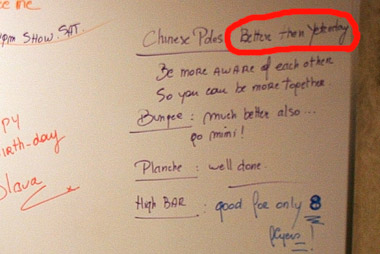 me
pm SHOW. SAT.
Chinese Poles: Better then Yesterday
Be more AWARE of each other
So you can be more together.
Bungee: much better also...
go minis!
PY
irth-day
Slava
Planche: well done.
High BAR: good for only 8
flyers!